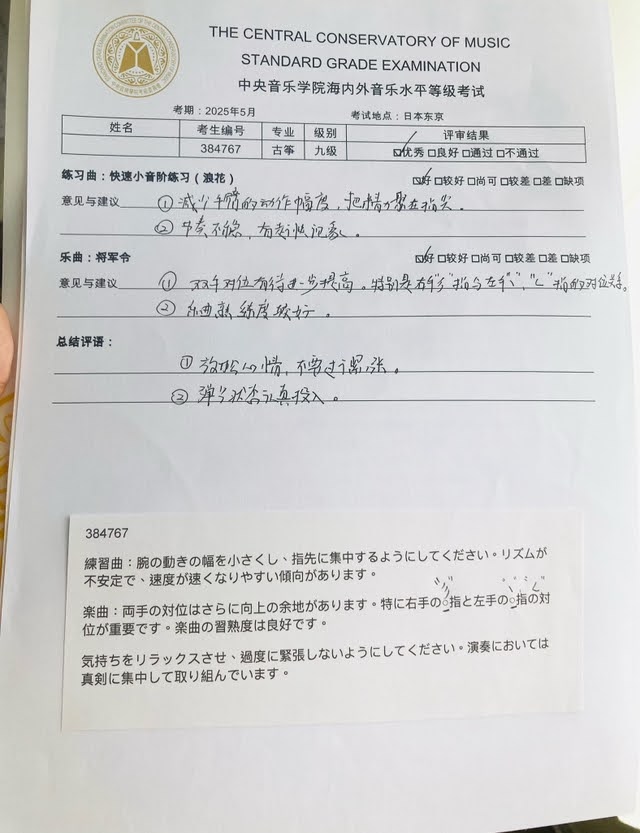 THE CENTRAL CONSERVATORY OF MUSIC
STANDARD GRADE EXAMINATION
中央音乐学院海内外音乐水平等级考试
考期：2025年5月
考试地点：日本东京
姓名 考生编号 专业 级别 评审结果
384767 古筝 九级 ☑优秀 □良好 □通过 □不通过
练习曲：快速小音阶练习（浪花） ☑好 □较好 □尚可 □较差 □差 □缺项
意见与建议 ① 减少手臂的动作幅度，把精力聚在指尖。
② 节奏不稳，有赶快现象。
乐曲：将军令 ☑好 □较好 □尚可 □较差 □差 □缺项
意见与建议 ① 双手对位有待进一步提高。特别是右手"彡"指与左手"丶"、"ㄑ"指的对位关系。
② 乐曲熟练度较好。
总结评语：
① 放松心情，不要过于紧张。
② 弹奏状态认真投入。
384767
練習曲：腕の動きの幅を小さくし、指先に集中するようにしてください。リズムが
不安定で、速度が速くなりやすい傾向があります。
楽曲：両手の対位はさらに向上の余地があります。特に右手の○指と左手の○指の対
位が重要です。楽曲の習熟度は良好です。
気持ちをリラックスさせ、過度に緊張しないようにしてください。演奏においては
真剣に集中して取り組んでいます。